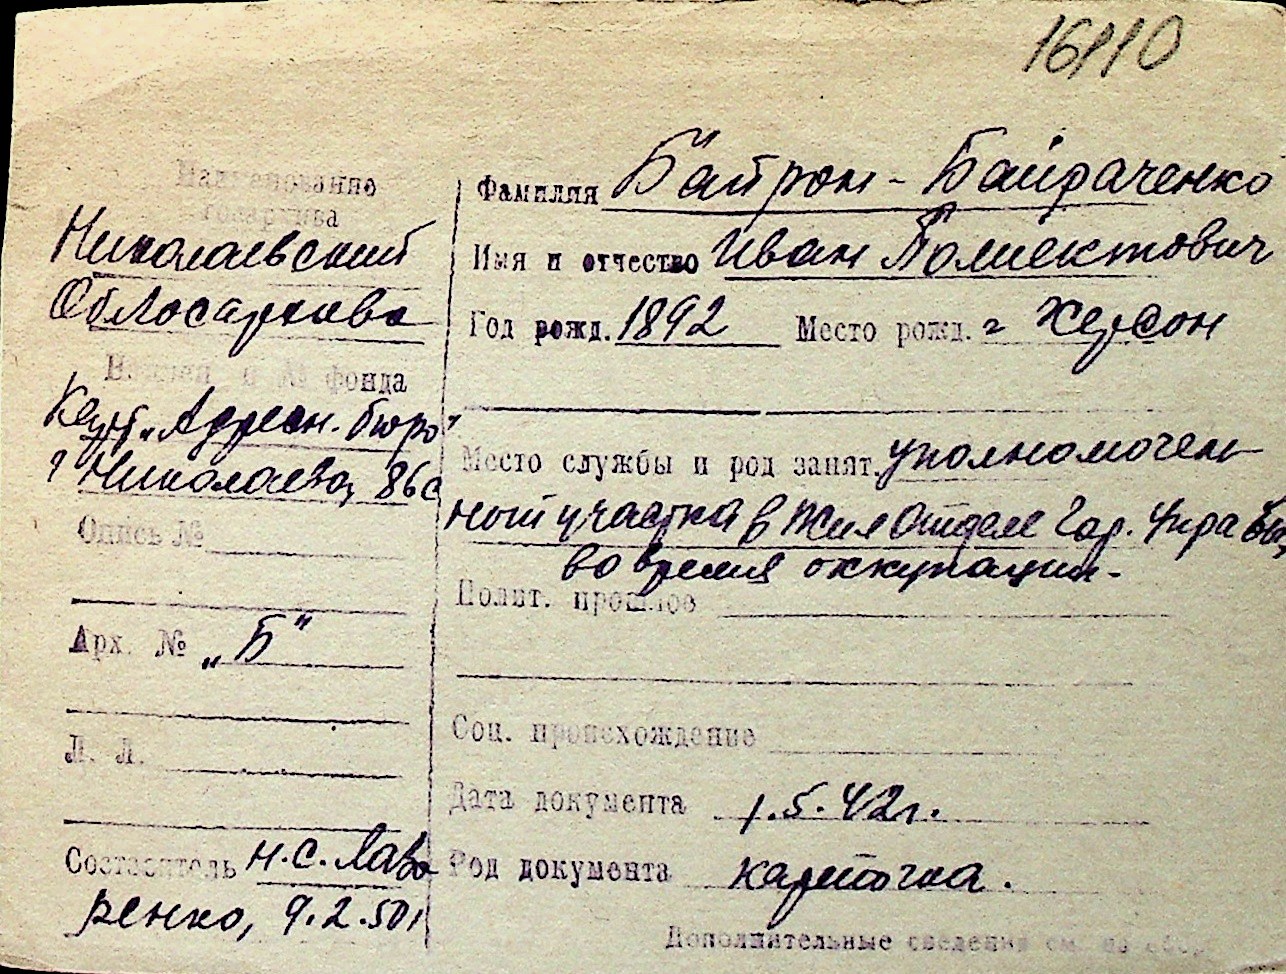 16110
Наименование
госархива
Николаевский
Облгосархив
№ фонда
"Адресн. бюро"
г Николаева, 86с
Опись №
Арх. № „Б"
Л. Л.
Составитель Н.С. Лав
ренко, 9.2.50г
Фамилия Байрон - Байраченко
Имя и отчество Иван Полиектович
Год рожд. 1892 Место рожд. г Херсон
Место службы и род занят. уполномочен-
ный участка в Жил Отделе Гор.
во время оккупации.
Полит. прошлое
Соц. происхождение
Дата документа 1.5.42г.
Род документа карточка.
Дополнительные сведения см. на обор.